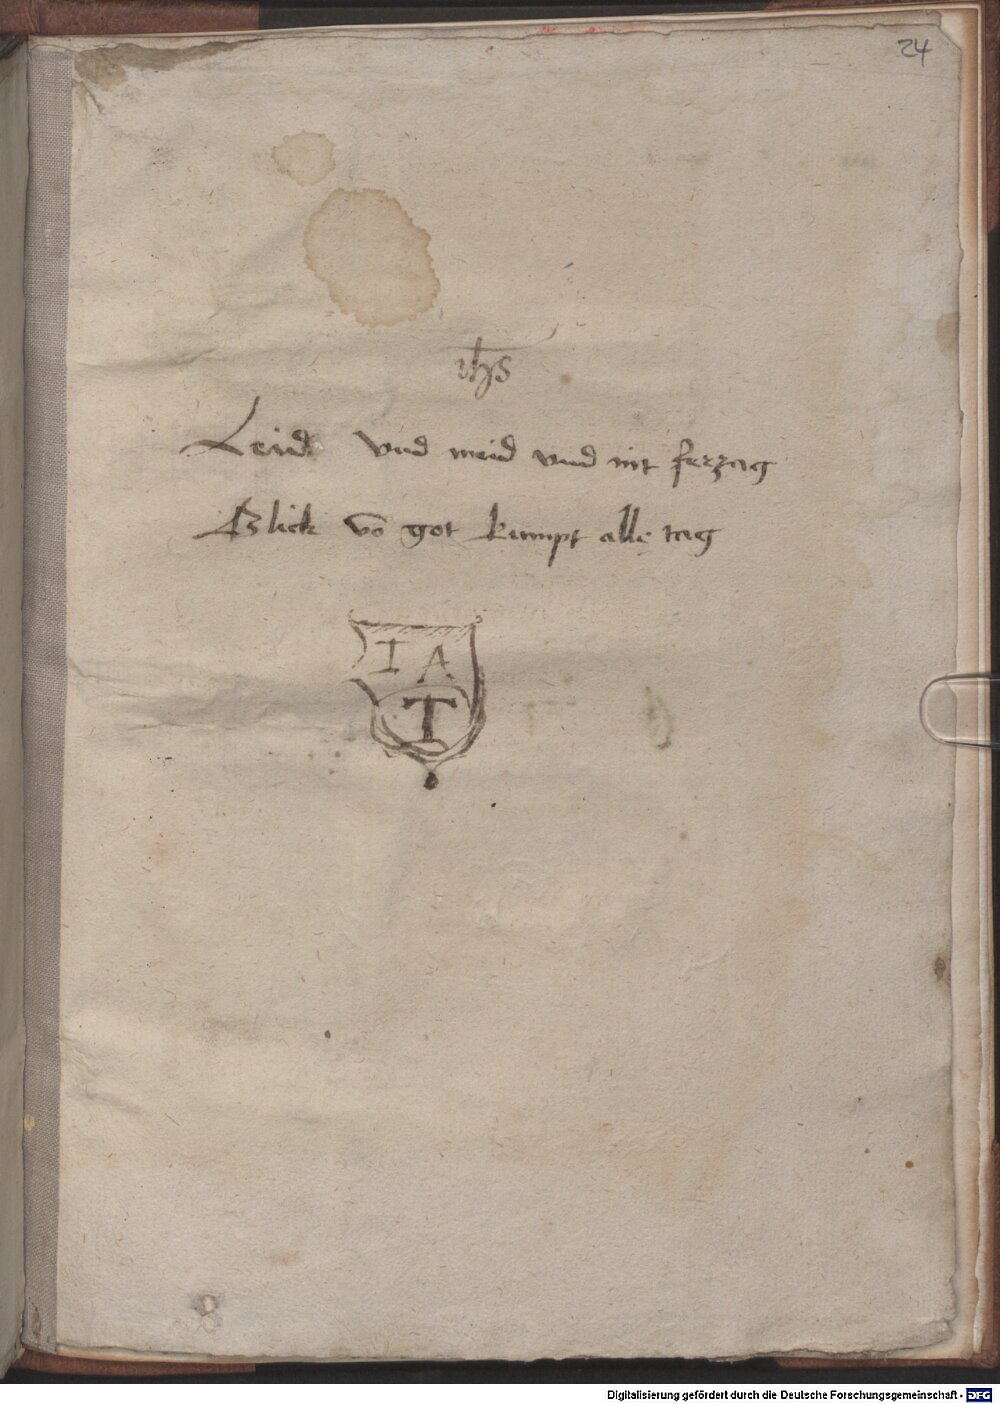 24
ihs
Leid vnd meid vnd nit ferzag
Glick vō got kumpt alle tag
I A
T
8
Digitalisierung gefördert durch die Deutsche Forschungsgemeinschaft - DFG